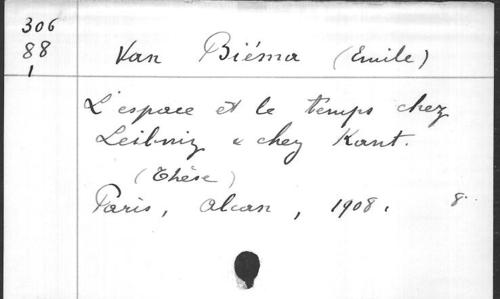 306
88
1
Van Biéma (Emile)
L'espace et le temps chez
Leibniz & chez Kant.
(Thèse)
Paris, Alcan, 1908. 8°